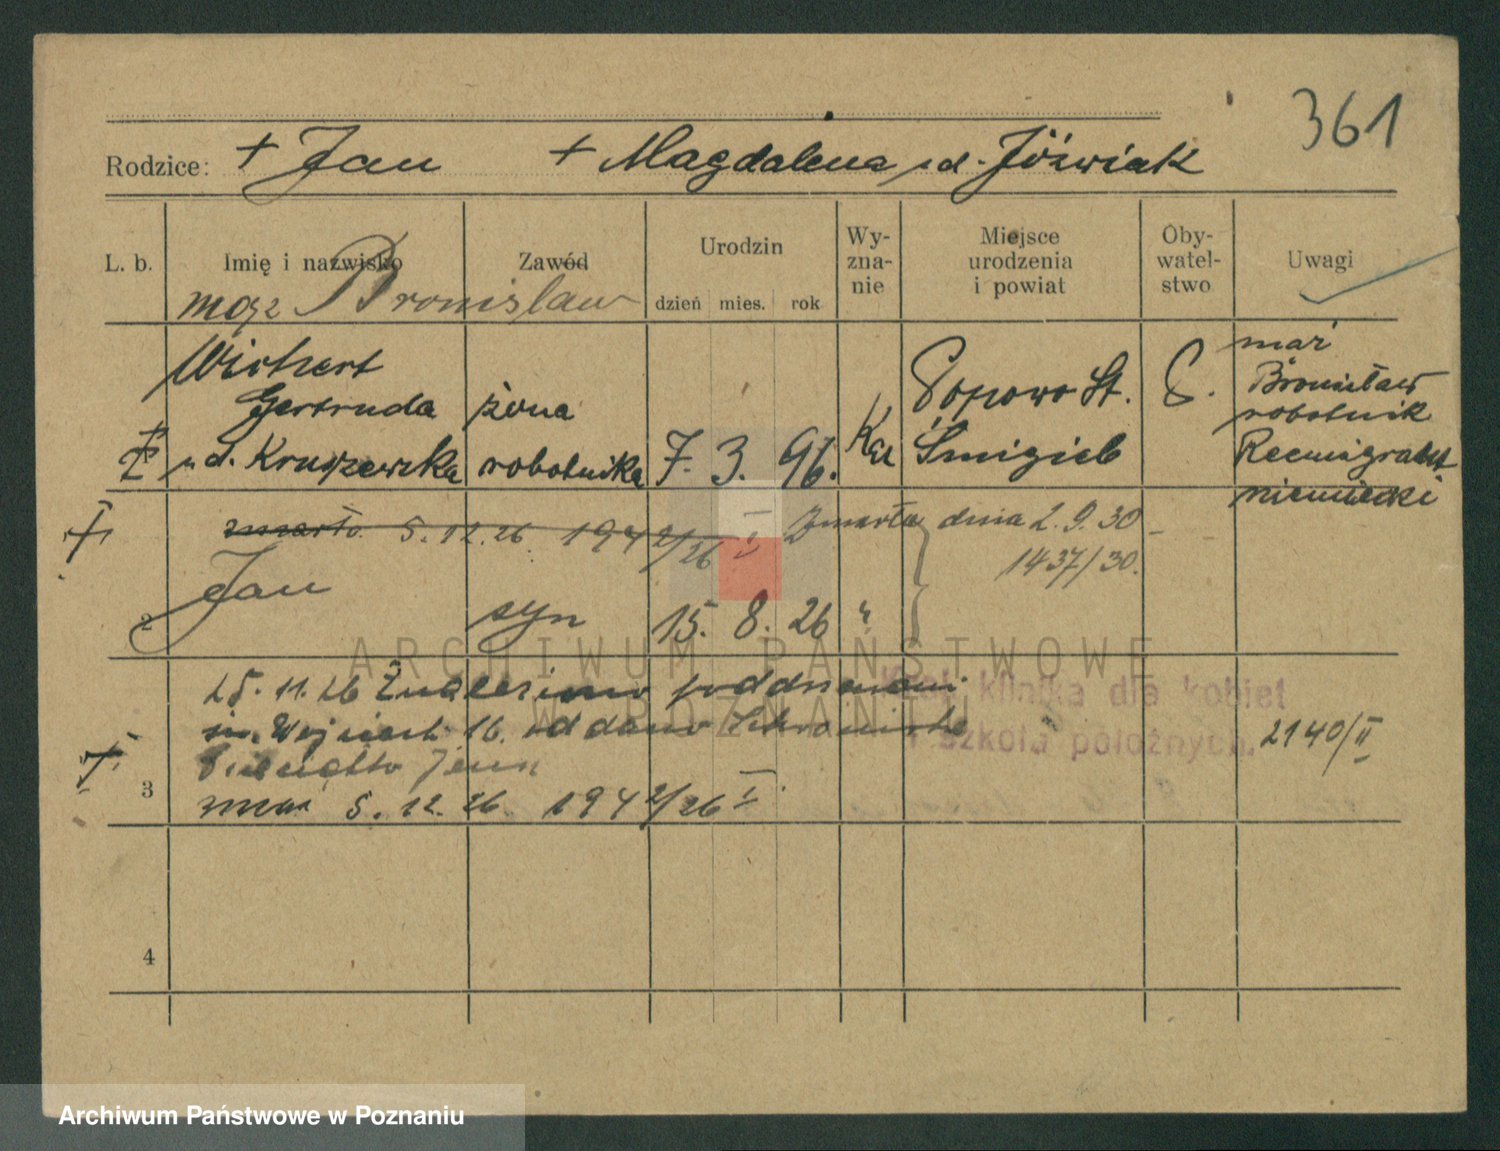 361
Rodzice: + Jan + Magdalena z d. Jóźwiak
L. b. Imię i nazwisko Zawód Urodzin dzień mies. rok Wy-zna-nie Miejsce urodzenia i powiat Oby-watel-stwo Uwagi
mąż Bronisław
Wichert
Gertruda żona
z d. Kruszewska robotnika 7. 3. 96. Kat
Popowo St.
Śmigiel
mąż
Bronisław
robotnik
Reemigrant
niemiecki
zmarło 5.12.26 1942/26 I
Zmarła dnia 2.9.30
1437/30.
2 Jan syn 15. 8. 26 "
25.11.26
Wojciech 16. oddano
3
zmar 5.12.26. 1942/26 I
Kraj. klinika dla kobiet
i szkoła położnych.
2140/II
4
ARCHIWUM PAŃSTWOWE
W POZNANIU
Archiwum Państwowe w Poznaniu